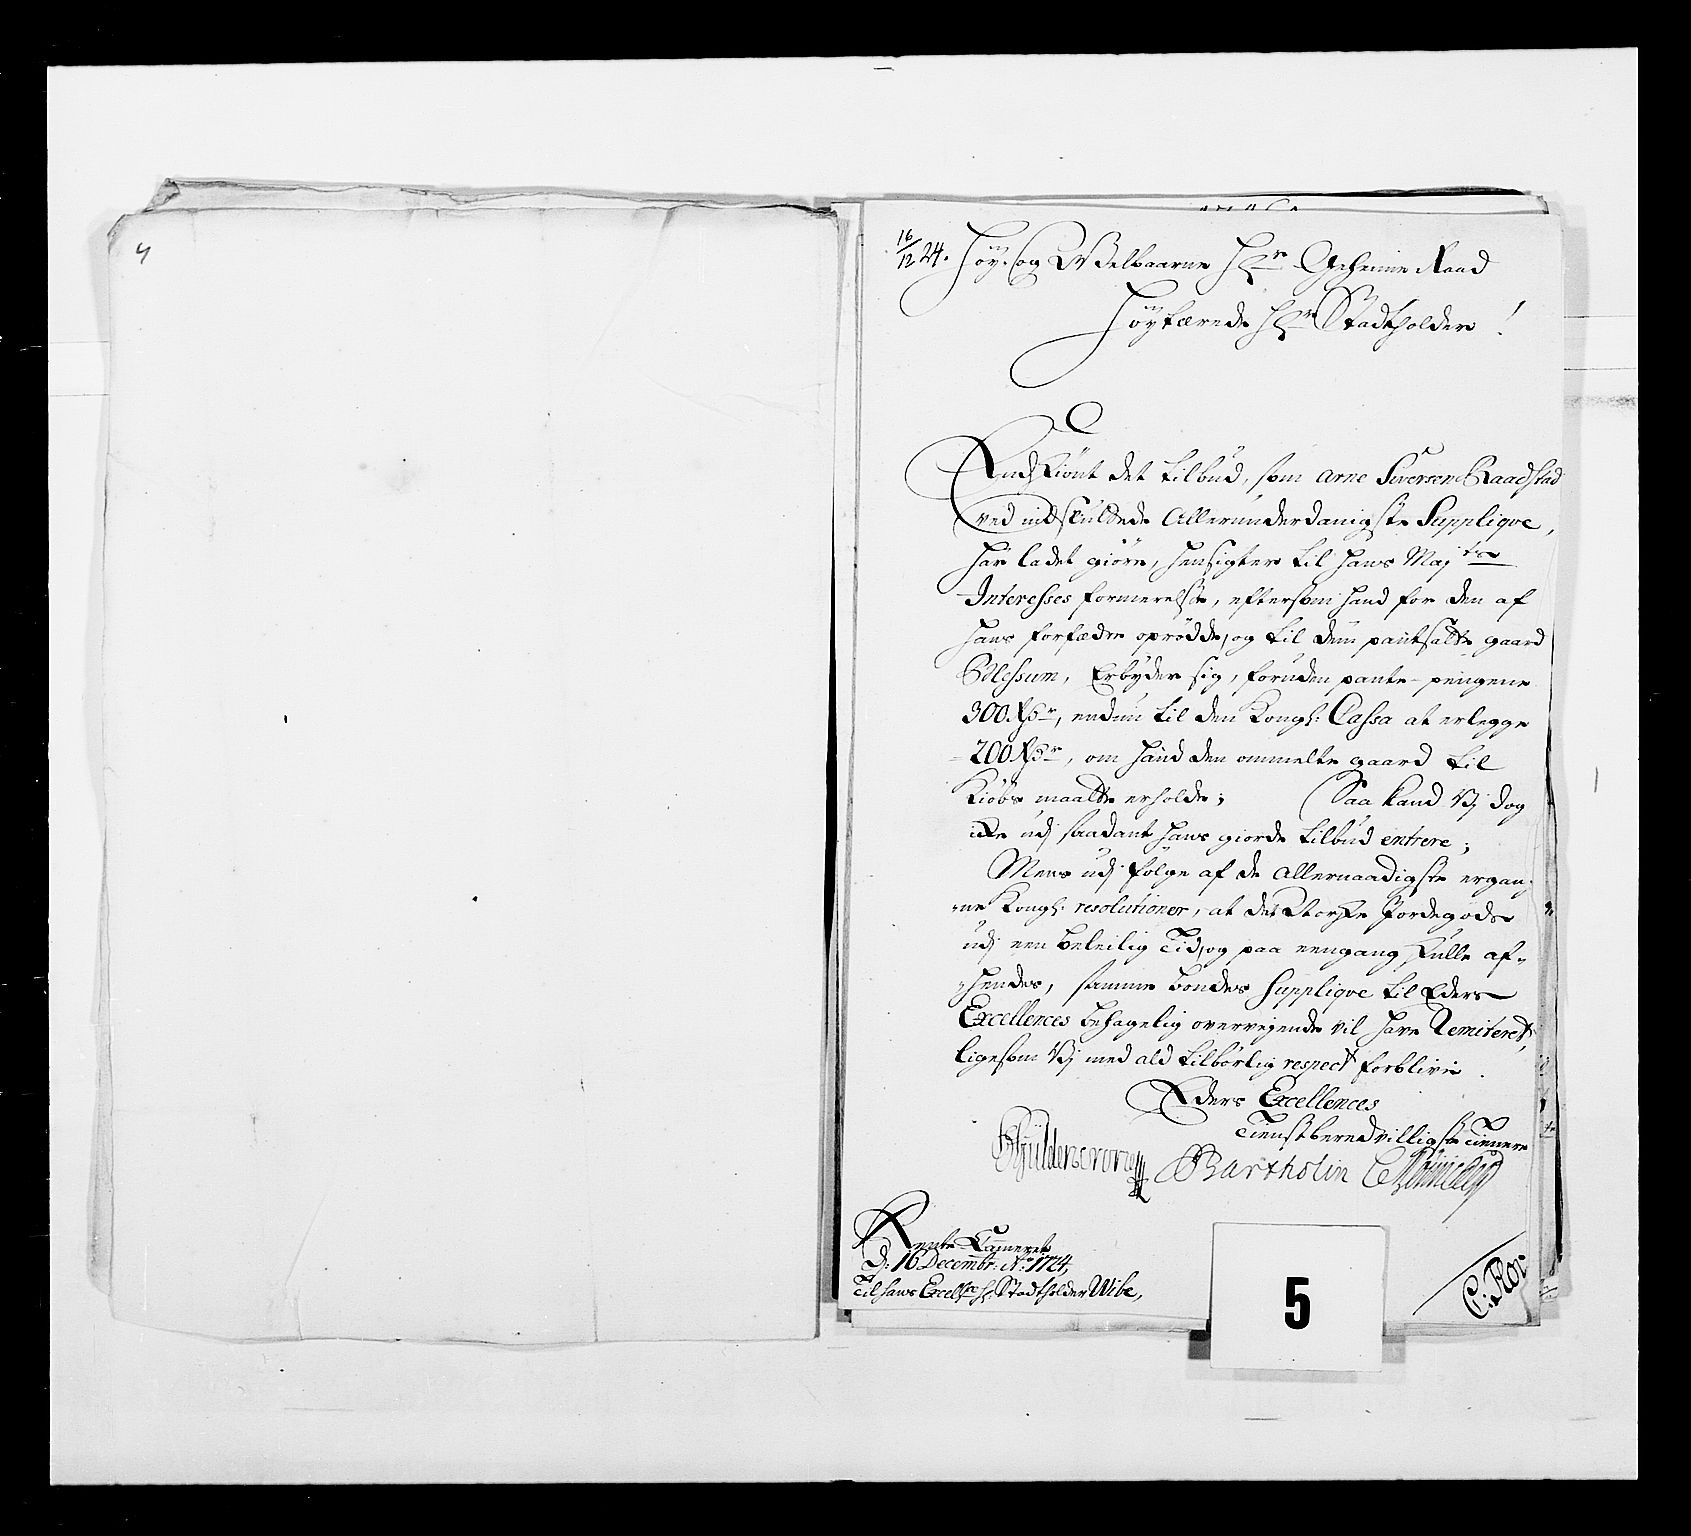 4
16/12 24. Høy og Welbaarne Hr Geheime Raad
Høytærede Hr Stadtholder!
Endskiønt det tilbud, som Arne Siversen Raadstad
ved indsluttede Allerunderdanigste Supplique,
har ladet giøre, hensigter til hans Mayts
Interesses formerelse, eftersom hand for den af
hans forfædre oprødde, og til dem pantsatte gaard
Blessum, Erbyder sig, foruden pante-pengene
300 Rdr, endnu til den Kongl: Cassa at erlegge
200 Rdr, om hand den ommelte gaard til
Kiøbs maatte erholde; Saa kand Vj dog
icke udj saadant hans giorde tilbud entrere;
Mens udj følge af de allernaadigste ergan,
,ne Kongl: resolutioner, at det Norske Jordegods
udj een beleilig Tid, og paa eengang skulle af,,
,,hendes, samme bondes Supplique til Eders
Excellences behagelig overvejende vil have Remiteret,
ligesom Vj med ald tilbørlig respect forblive.
Eders Excellences
Tienstberedvilligste Tienere
Gyldencrone Bartholin
Rente Cammeret
D: 16 Decembr: Ao 1724,
Til hans Excellce Hr Stadtholder Wibe,
C: Ror
5